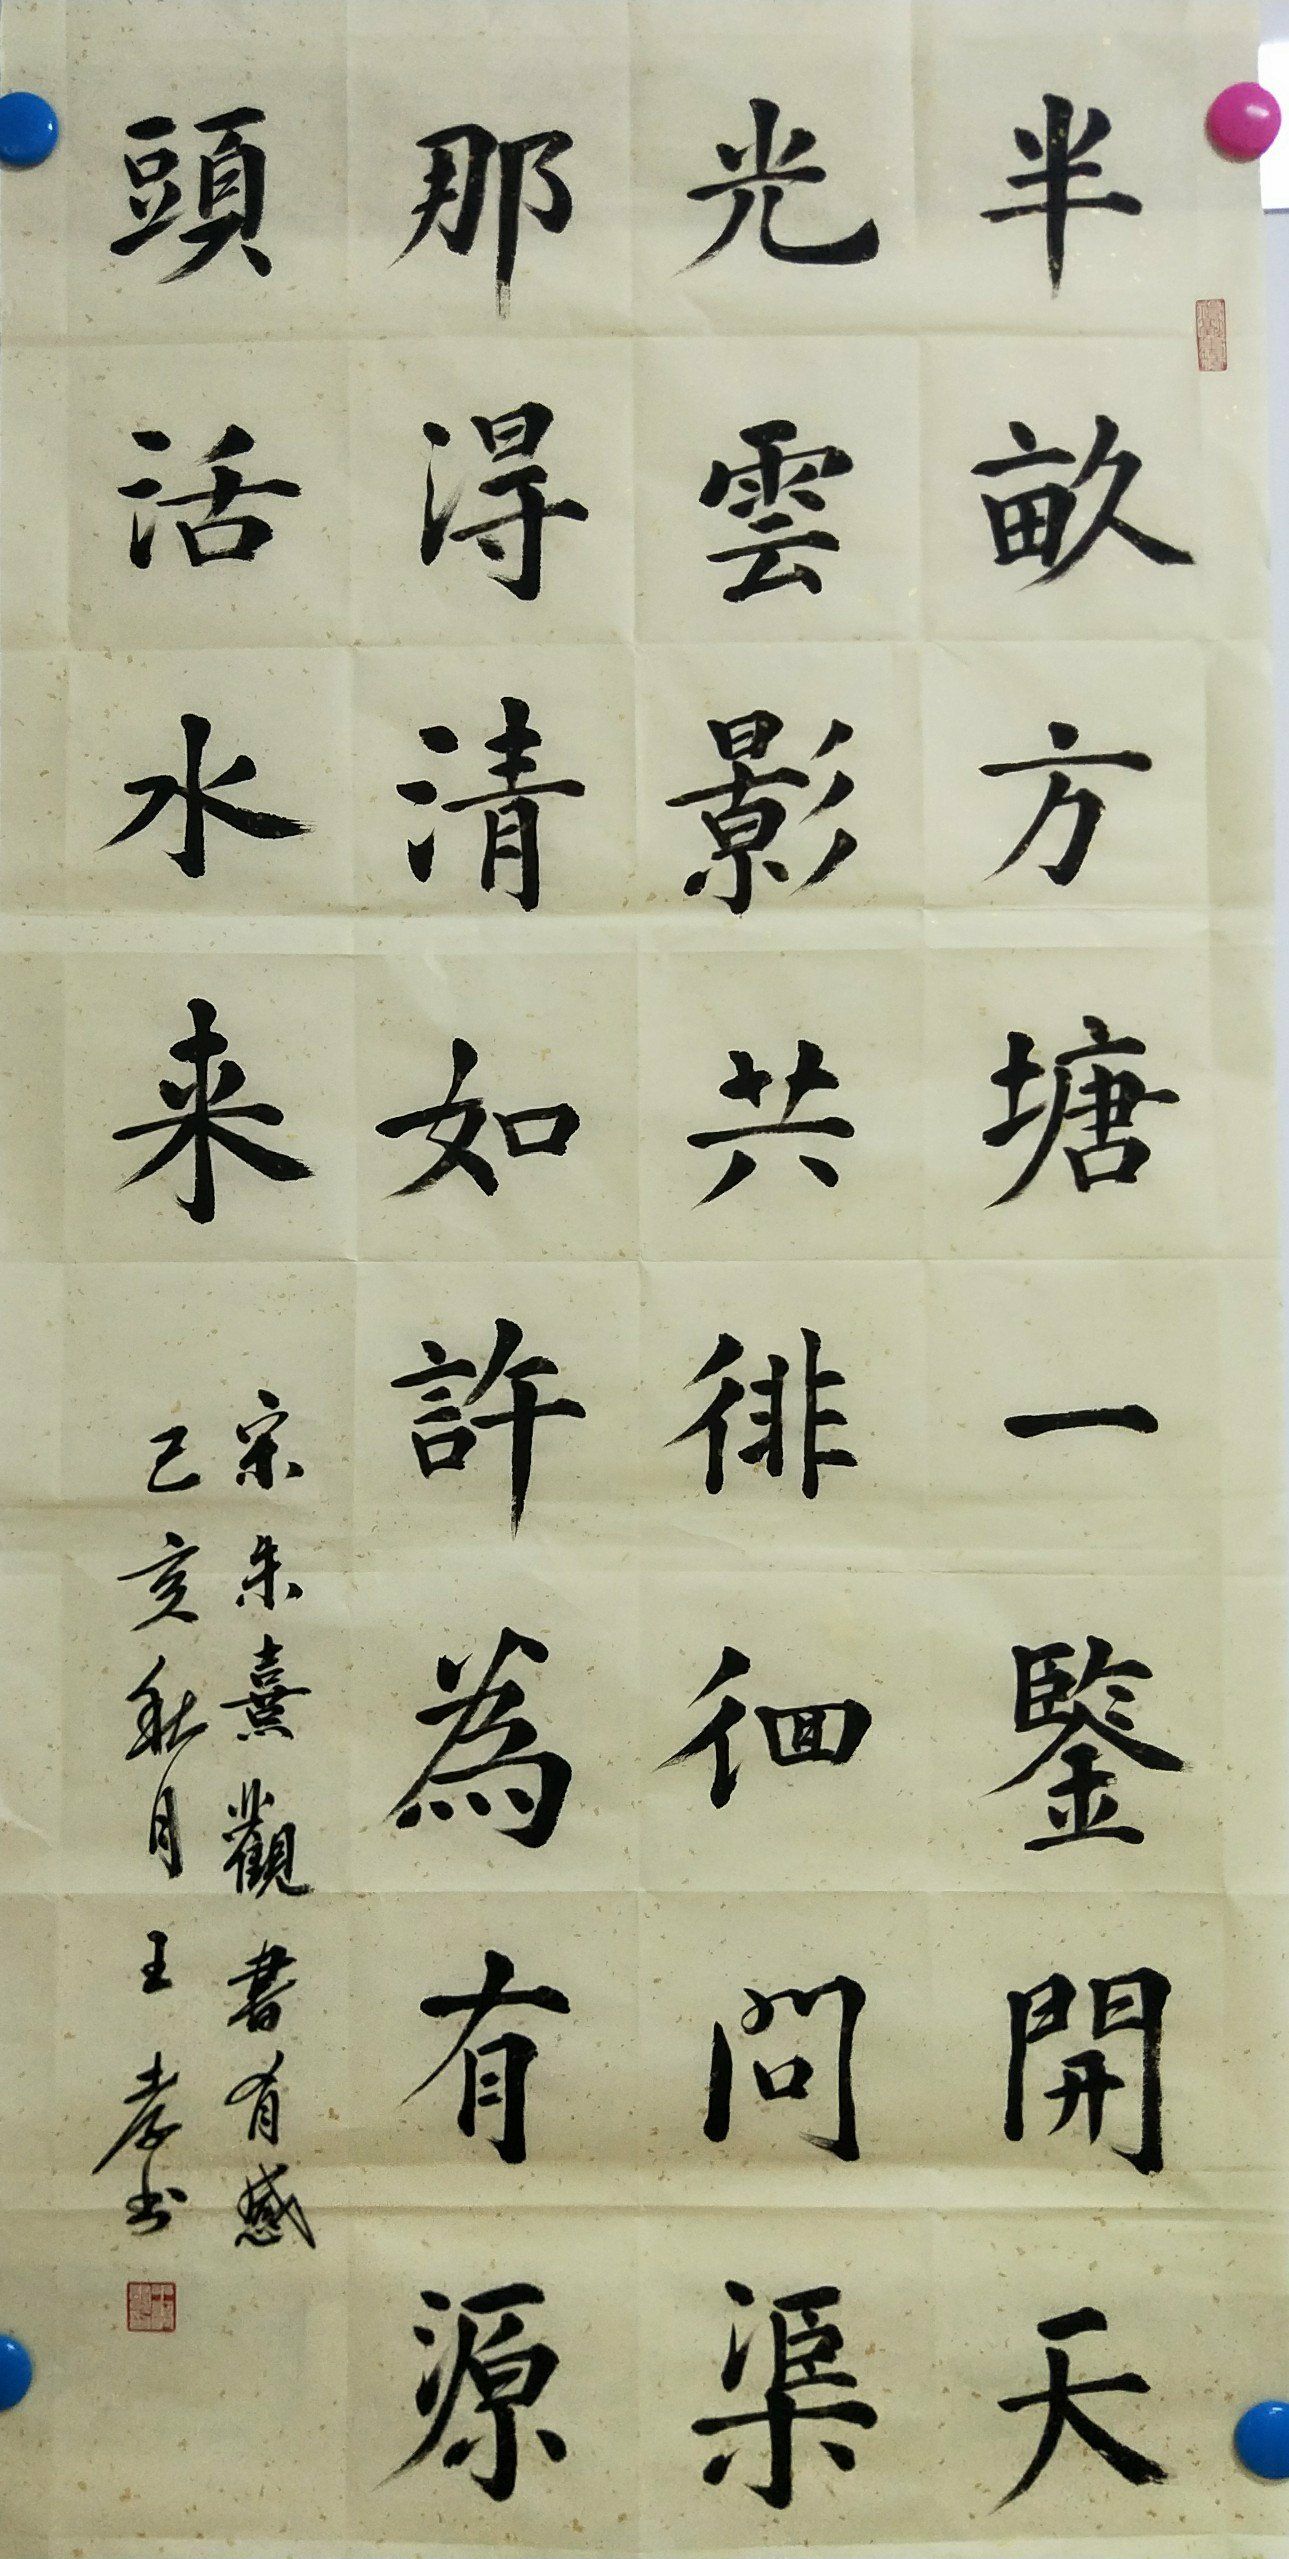 半畝方塘一鑒開天
光雲影共徘徊問渠
那得清如許為有源
頭活水来
宋朱熹觀書有感
己亥秋月王孝书